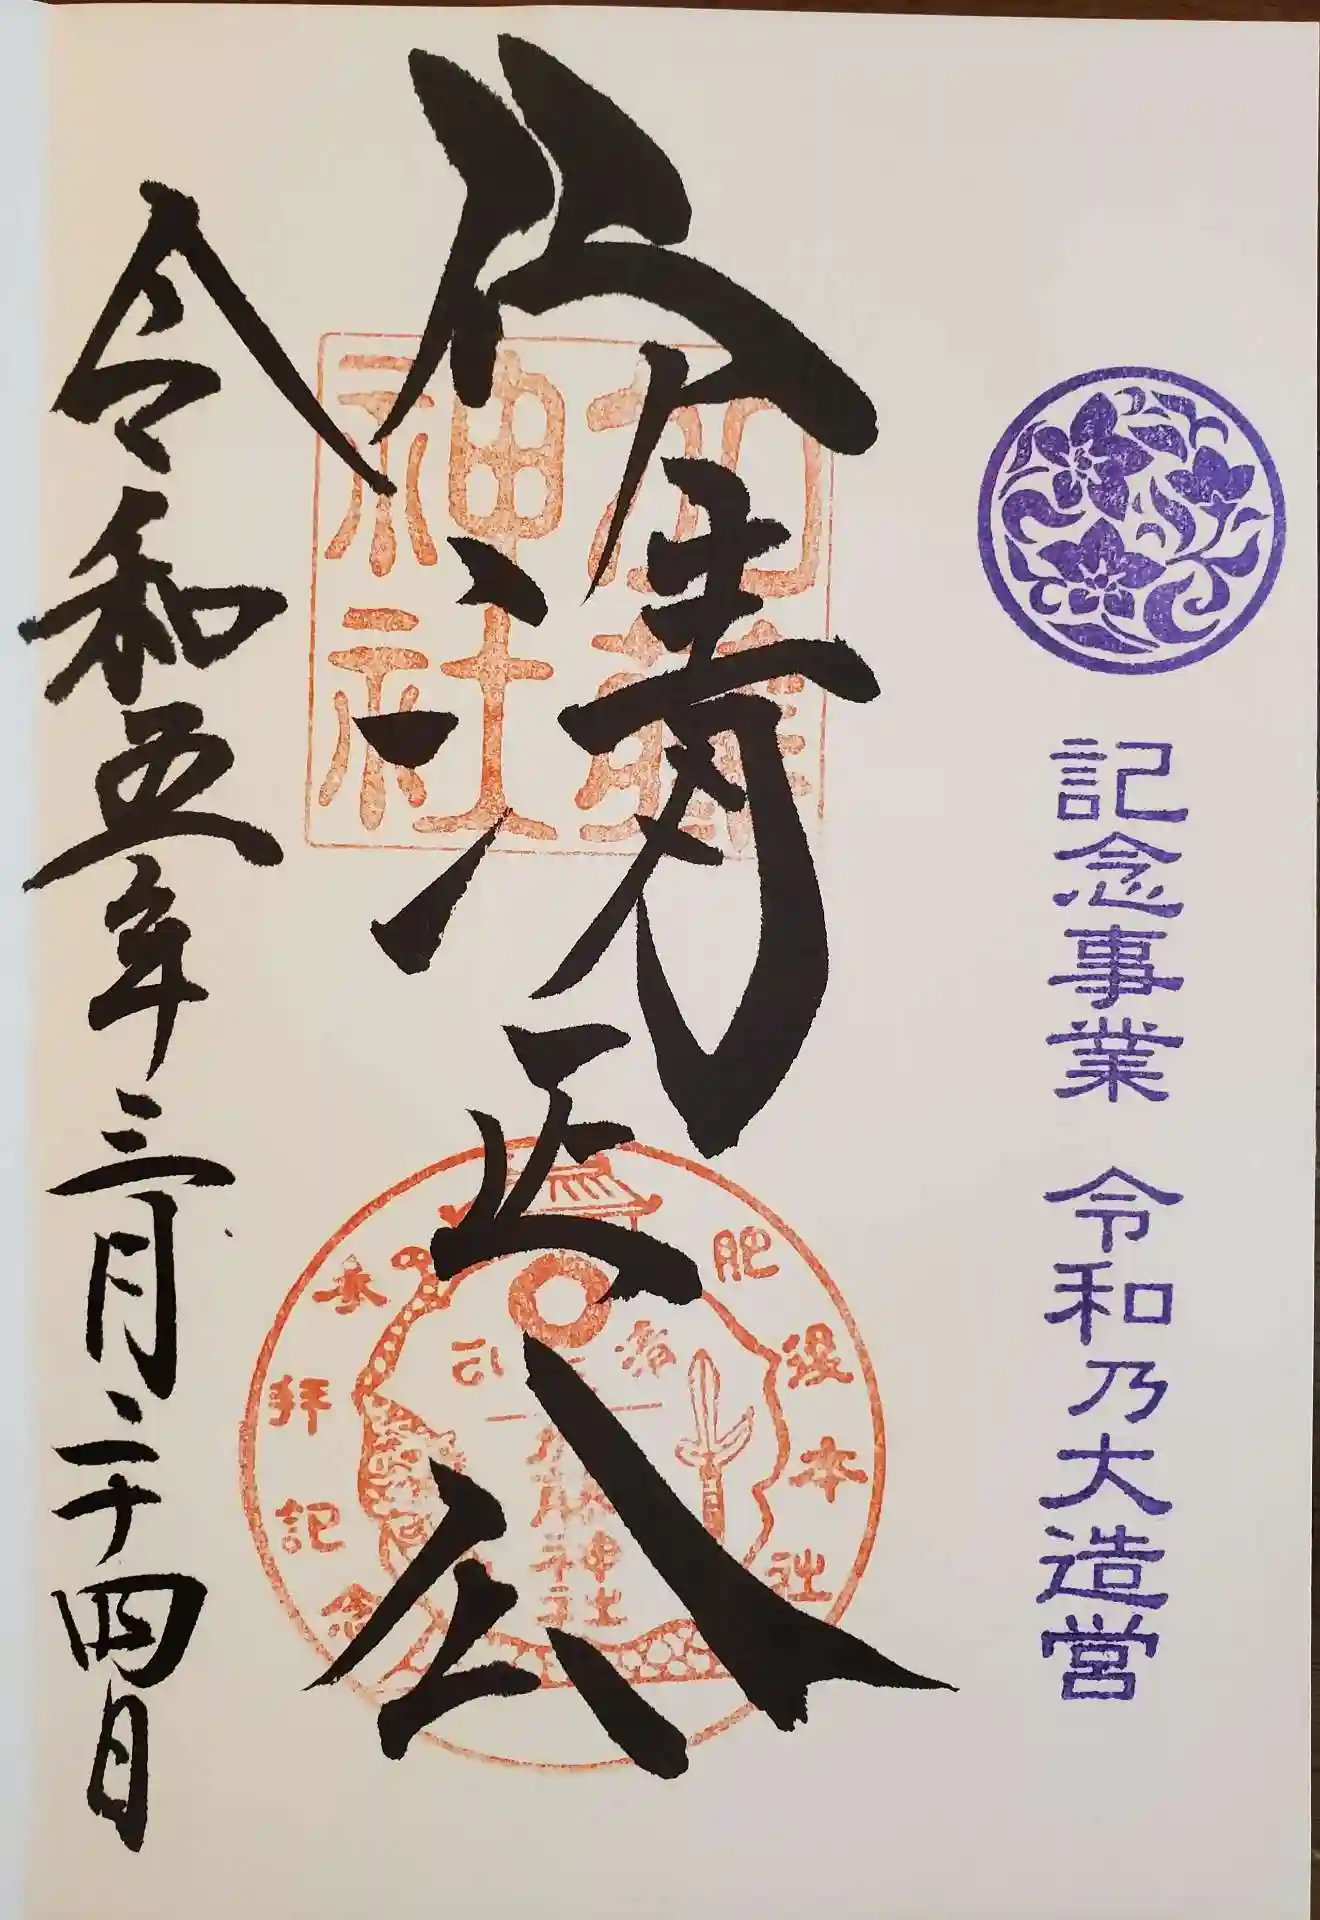 記念事業 令和乃大造営
清正公
加藤神社
肥後本社
参拝記念
清正
令和五年三月二十四日